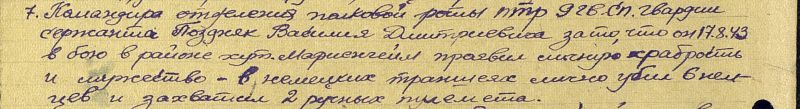 7. Командира отделения полковой роты птр 9 гв. сп. гвардии
сержанта Поздняк Василия Дмитриевича за то, что он 17.8.43
в бою в районе хут. Мариенгейм проявил личную храбрость
и мужество - в немецких траншеях лично убил 6 нем
цев и захватил 2 ручных пулемета.